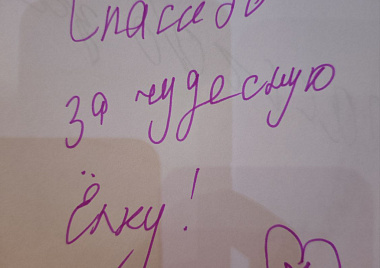 Спасибо
за чудесную
Ёлку!